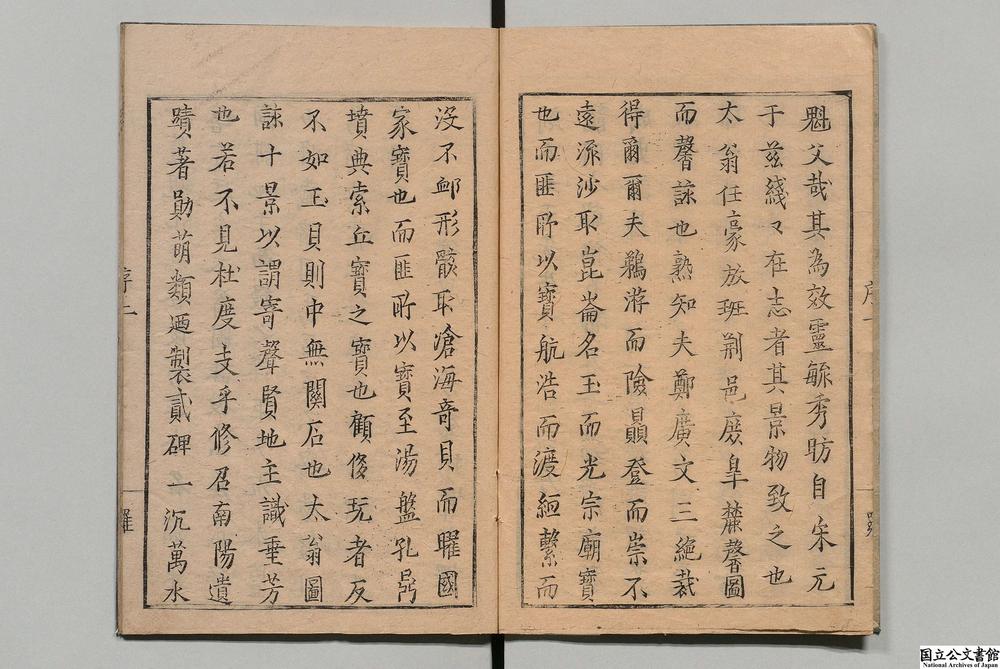 魁父哉其為效靈毓秀昉自宋元
于茲綫々在志者其景物致之也
太翁任豪放班荆邑廢阜麓罄圖
而罄詠也熟知夫鄭廣文三絕裁
得爾爾夫鵜游而險贔登而崇不
遠流沙取崑崙名玉而光宗廟寶
也而匪所以寶航浩而渡縆繫而
序一
沒不卹形骸取滄海奇貝而曜國
家寶也而匪所以寶至湯盤孔鼎
墳典索丘寶之寶也顧俊玩者反
不如玉貝則中無關石也太翁圖
詠十景以謂寄聲賢地主識垂芳
也若不見杜度支乎修召南陽遺
蹟著勛萌類廼製貳碑一沉萬水
序二
羅
国立公文書館
National Archives of Japan